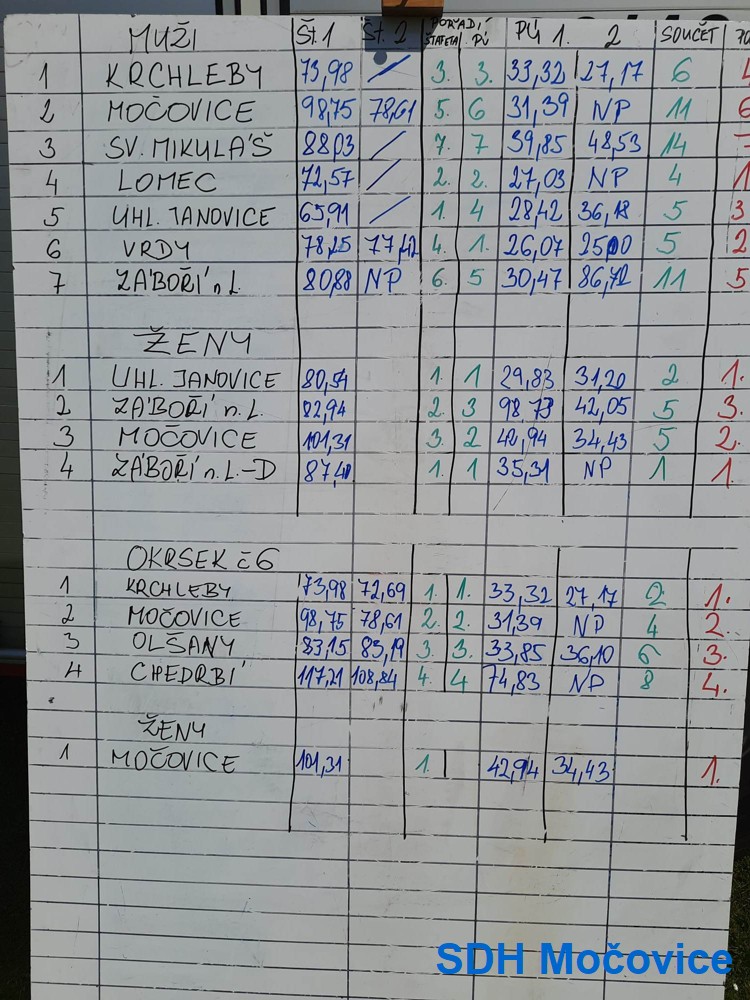 MUŽI ŠT. 1 ŠT. 2 POŘADÍ ŠTAFETA PÚ PÚ 1. 2 SOUČET
1 KRCHLEBY 73,98 / 3. 3. 33,32 27,17 6
2 MOČOVICE 98,75 78,61 5. 6 31,39 NP 11 6
3 SV. MIKULÁŠ 88,03 / 7. 7 39,85 48,53 14
4 LOMEC 72,57 / 2. 2. 27,03 NP 4 1
5 UHL. JANOVICE 65,91 / 1. 4 28,42 36,18 5 3
6 VRDY 78,25 77,42 4. 1. 26,07 25,00 5 2
7 ZÁBOŘÍ n L. 80,88 NP 6. 5 30,47 86,72 11 5
ŽENY
1 UHL. JANOVICE 80,54 1. 1 29,83 31,20 2 1.
2 ZÁBOŘÍ n. L. 82,94 2. 3 98,73 42,05 5 3.
3 MOČOVICE 101,31 3. 2 42,94 34,43 5 2.
4 ZÁBOŘÍ n. L.-D 87,40 1. 1 35,31 NP 1 1.
OKRSEK č 6
1 KRCHLEBY 73,98 72,69 1. 1. 33,32 27,17 2 1.
2 MOČOVICE 98,75 78,61 2. 2. 31,39 NP 4 2.
3 OLŠANY 83,15 83,19 3. 3. 33,85 36,10 6 3.
4 CHEDRBÍ 117,21 108,84 4. 4 74,83 NP 8 4.
ŽENY
1 MOČOVICE 101,31 1. 42,94 34,43 1.
SDH Močovice